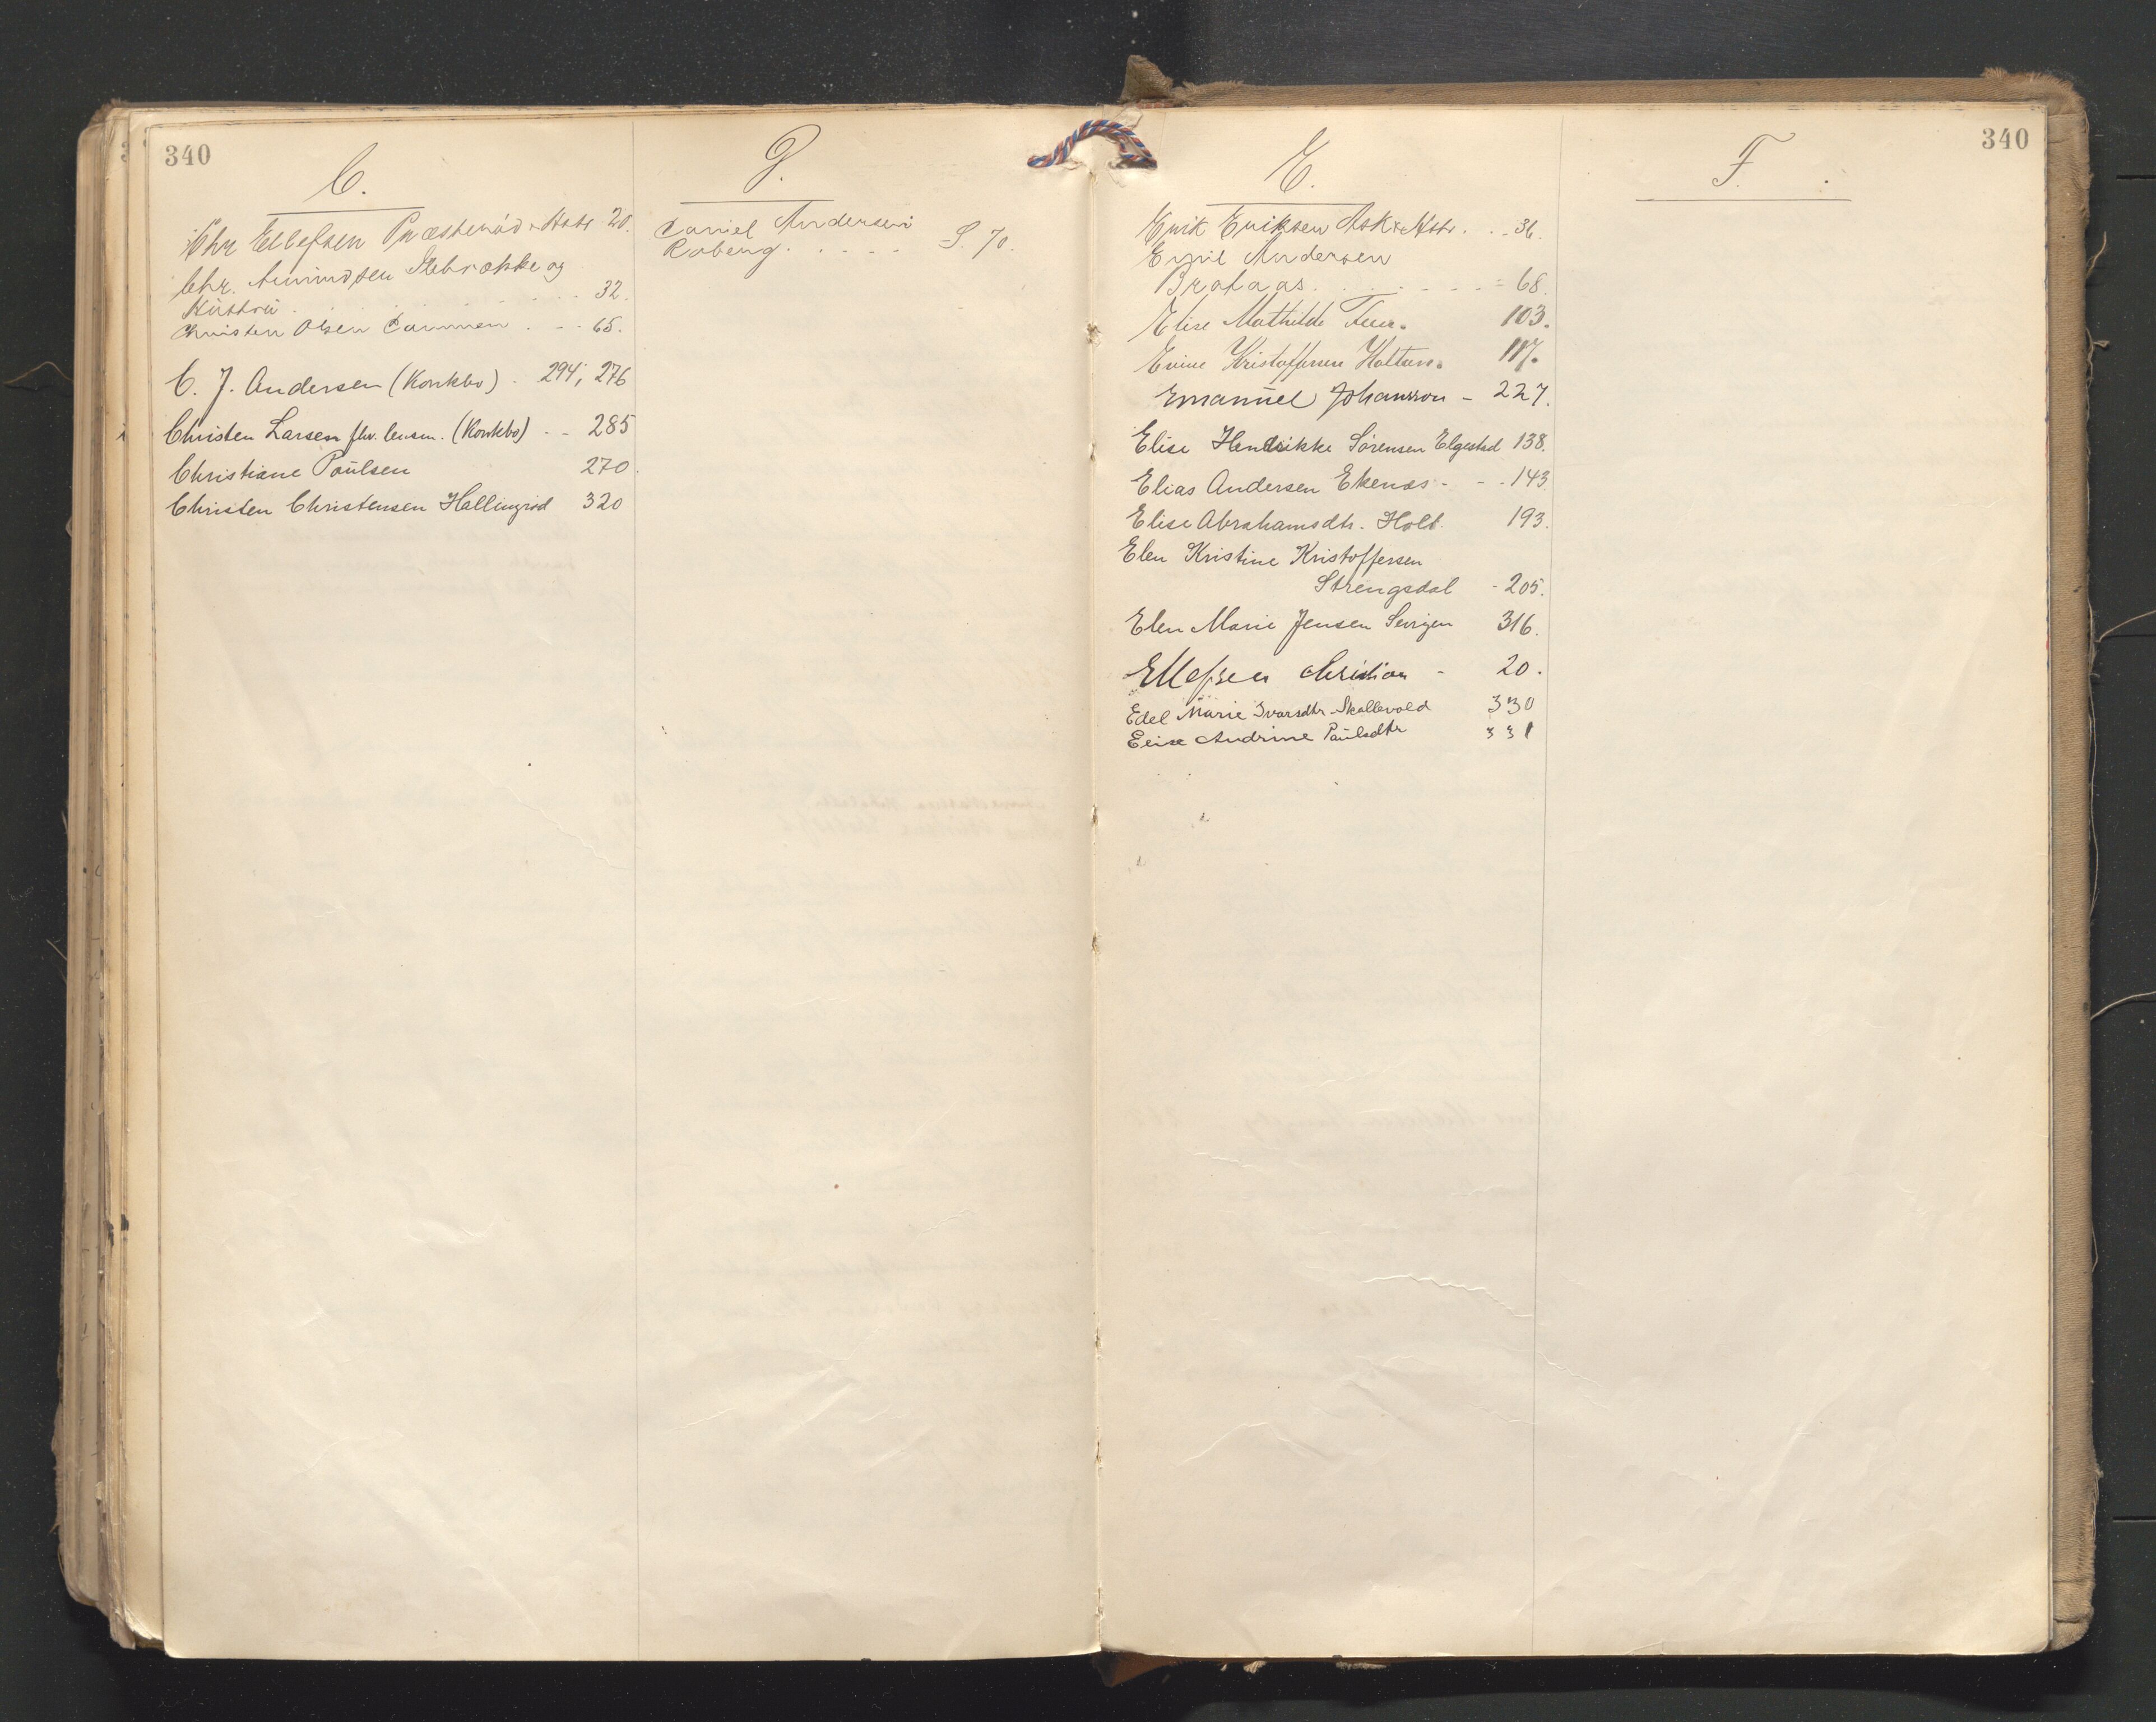 340
C.
Chr Ellefsen Præsterød + Hstr 20.
Chr. Amundsen Slebrække og
32.
Christen Olsen Dammen . - . 65.
C. J. Andersen (Konkbo) . 294, 276
Christen Larsen fhv. lensm. (Konkbo) . - 285
Christiane Paulsen 270.
Christen Christensen Hallingrød 320
D.
Daniel Andersen
Roberg . . . . . S. 70.
340
E.
Erik Eriksen Ask + Hstr. . . 36.
Emil Andersen
Brataas . . . . . - - 68.
Elise Mathilde 103.
Kristoffersen 117.
Emanuel Johansson - 227.
Elise Hendrikke Sørensen Elgestad 138.
Elias Andersen Ekenæs - - . 143.
Elise Abrahamsdtr. Holt. 193.
Elen Kristine Kristoffersen
Strengsdal - 205.
Elen Marie Jensen 316.
Ellefsen Christian - 20.
Edel Marie Ivarsdtr. Skallevold 330
Elise Andrine Paulsdtr 331
F.